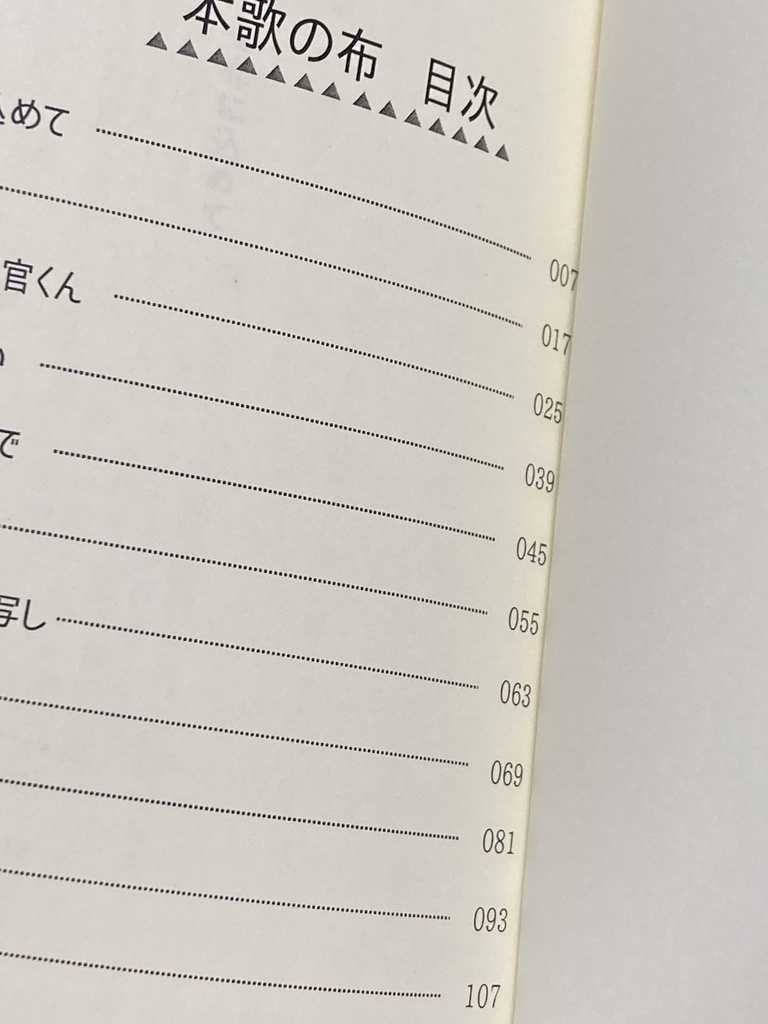 本歌の布　目次
込めて 007
017
官くん 025
039
で 045
055
写し 063
069
081
093
107